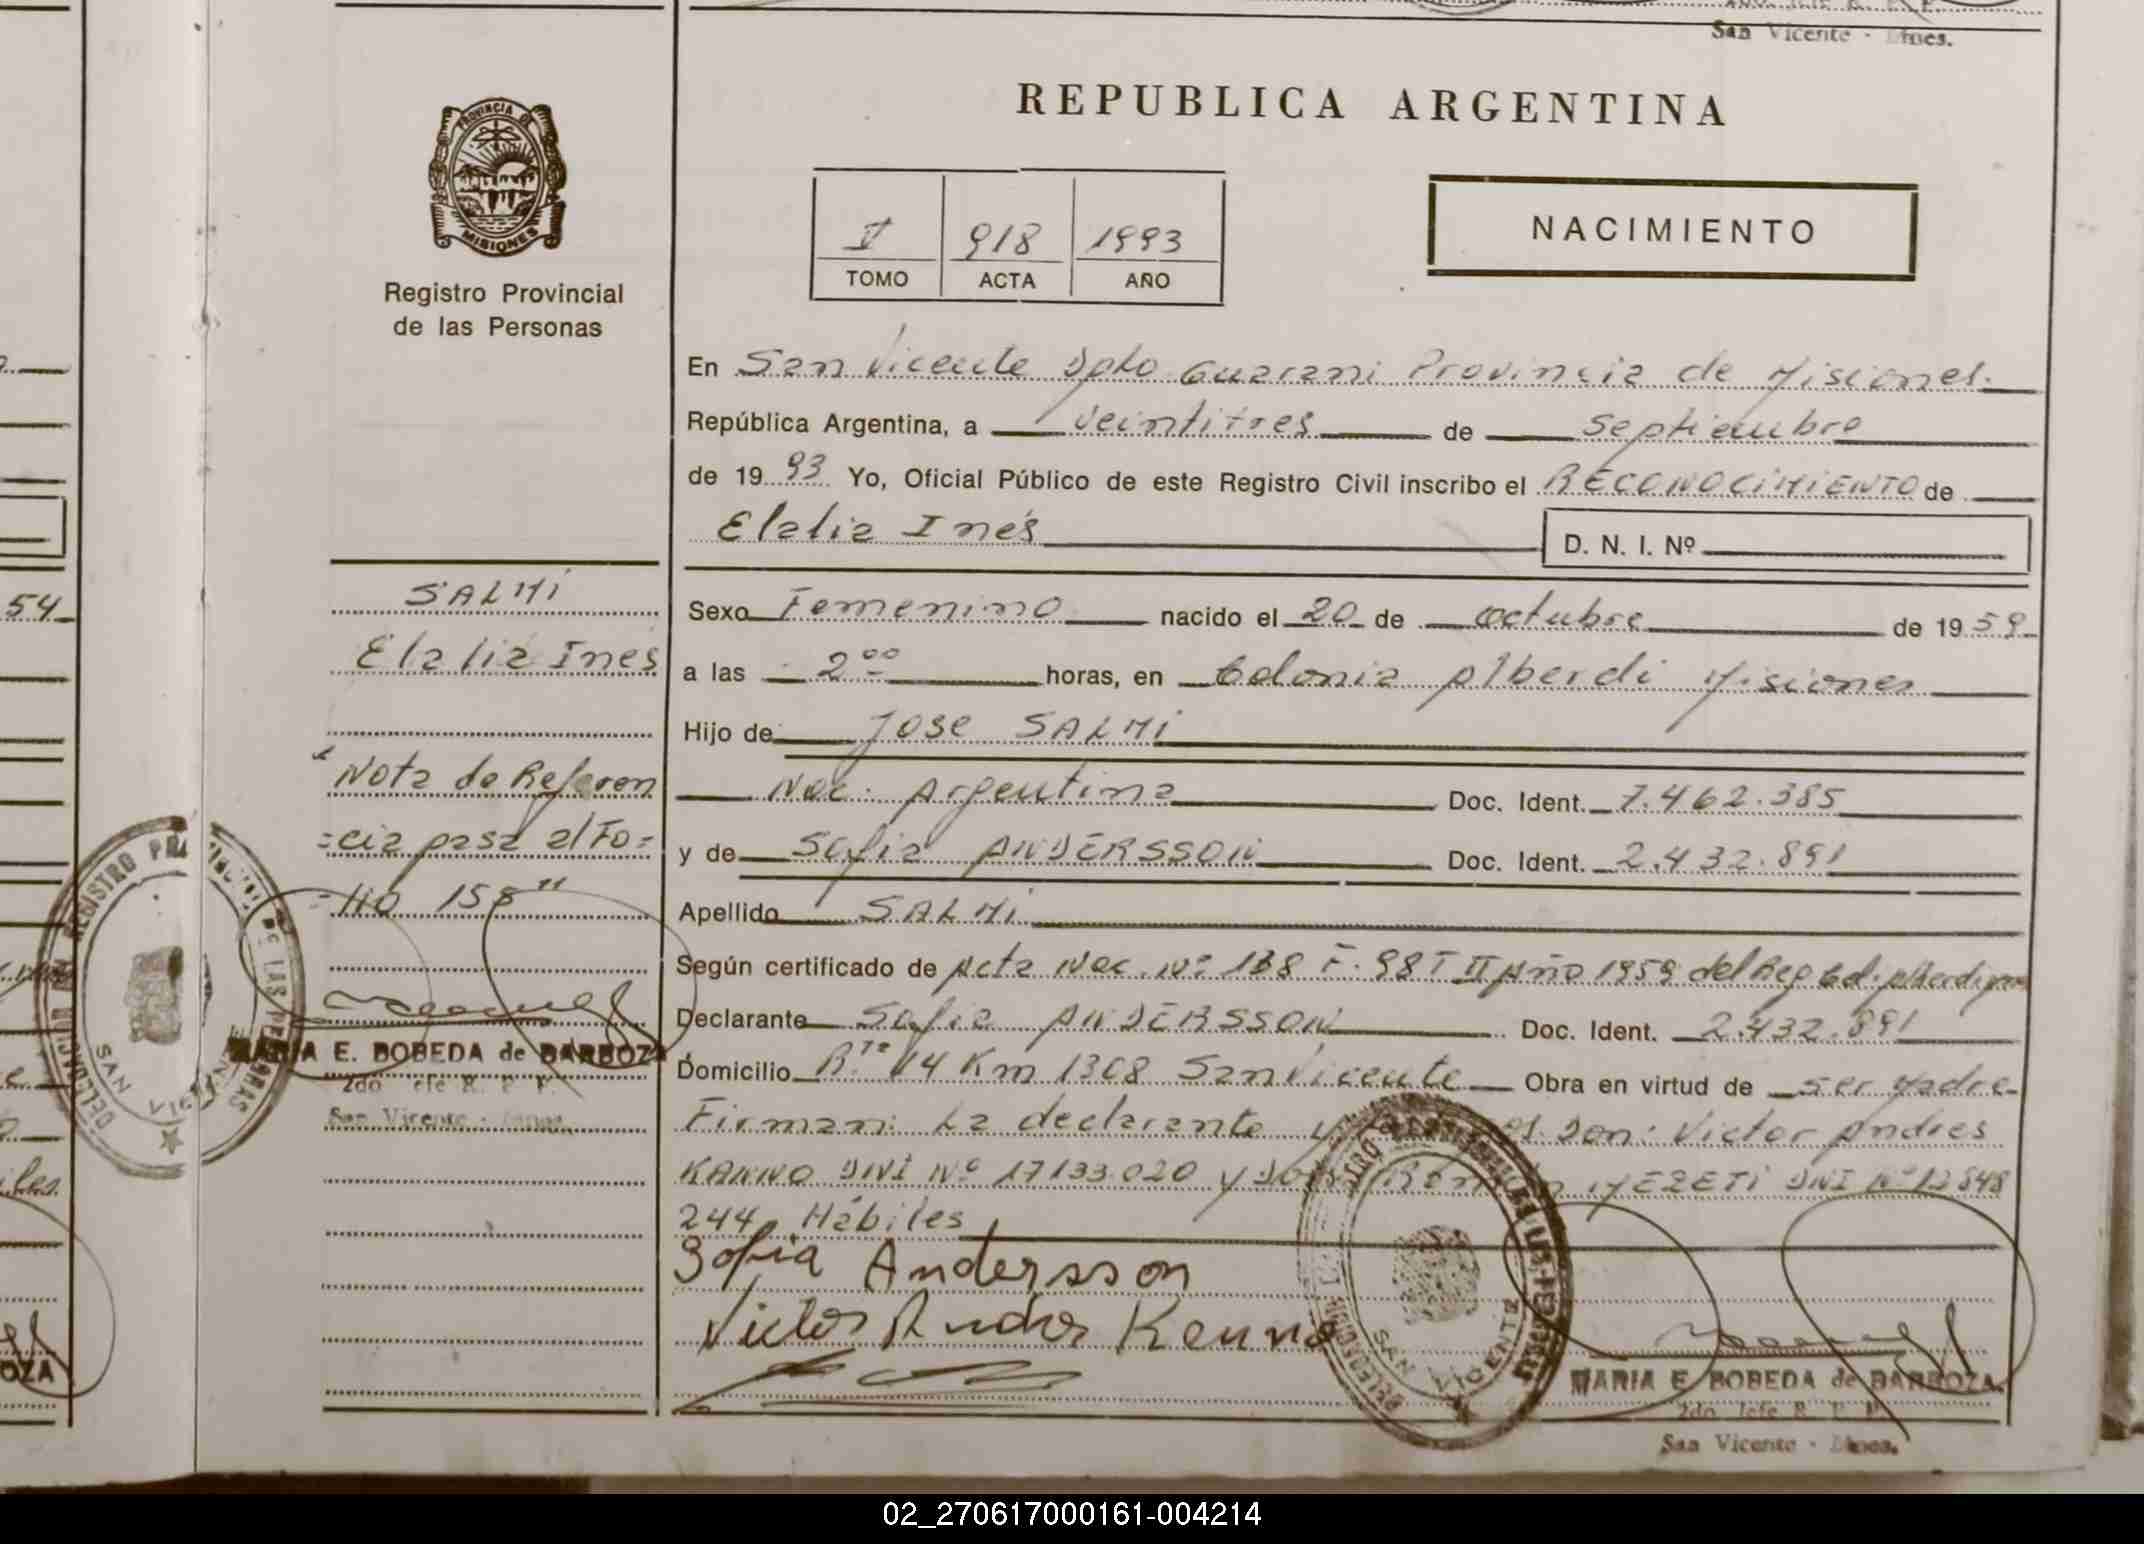 San Vicente - Mnes.
REPUBLICA ARGENTINA
PROVINCIA DE
MISIONES
Registro Provincial
de las Personas
V 918 1993
TOMO ACTA AÑO
NACIMIENTO
En San Vicente Dpto Guarani Provincia de Misiones.
República Argentina, a veintitres de Septiembre
de 1993 Yo, Oficial Público de este Registro Civil inscribo el RECONOCIMIENTO de
Elalia Inés
D. N. I. Nº
SALMI
Elalia Inés
"Nota de Referen
=cia pasa al Fo=
=lio 158"
MARIA E. BOBEDA de BARBOZA
2do Jefe R. P. P.
San Vicente - Mnes.
Sexo Femenino nacido el 20 de octubre de 1959
a las 2°° horas, en Colonia Alberdi Misiones
Hijo de Jose SALMI
Nac. Argentina Doc. Ident. 7.462.385
y de Sofia ANDERSSON Doc. Ident. 2.432.891
Apellido SALMI
Según certificado de Acta Nac. Nº 138 F. 98 T II Año 1959 del Reg Col. Alberdi
Declarante Sofia ANDERSSON Doc. Ident. 2.432.891
Domicilio R.ta 14 Km 1308 San Vicente Obra en virtud de ser Madre
Firman: La declarante y Don: Victor Andres
KANNO DNI Nº 17133.020 y YEZETI DNI Nº 12848
244, Hábiles
Sofia Andersson
Victor Andres Kenno
REGISTRO DE LAS PERSONAS
DELEGACION
SAN VICENTE
MARIA E. BOBEDA de BARBOZA
2do Jefe R. P. P.
San Vicente - Mnes.
54
OZA
02_270617000161-004214